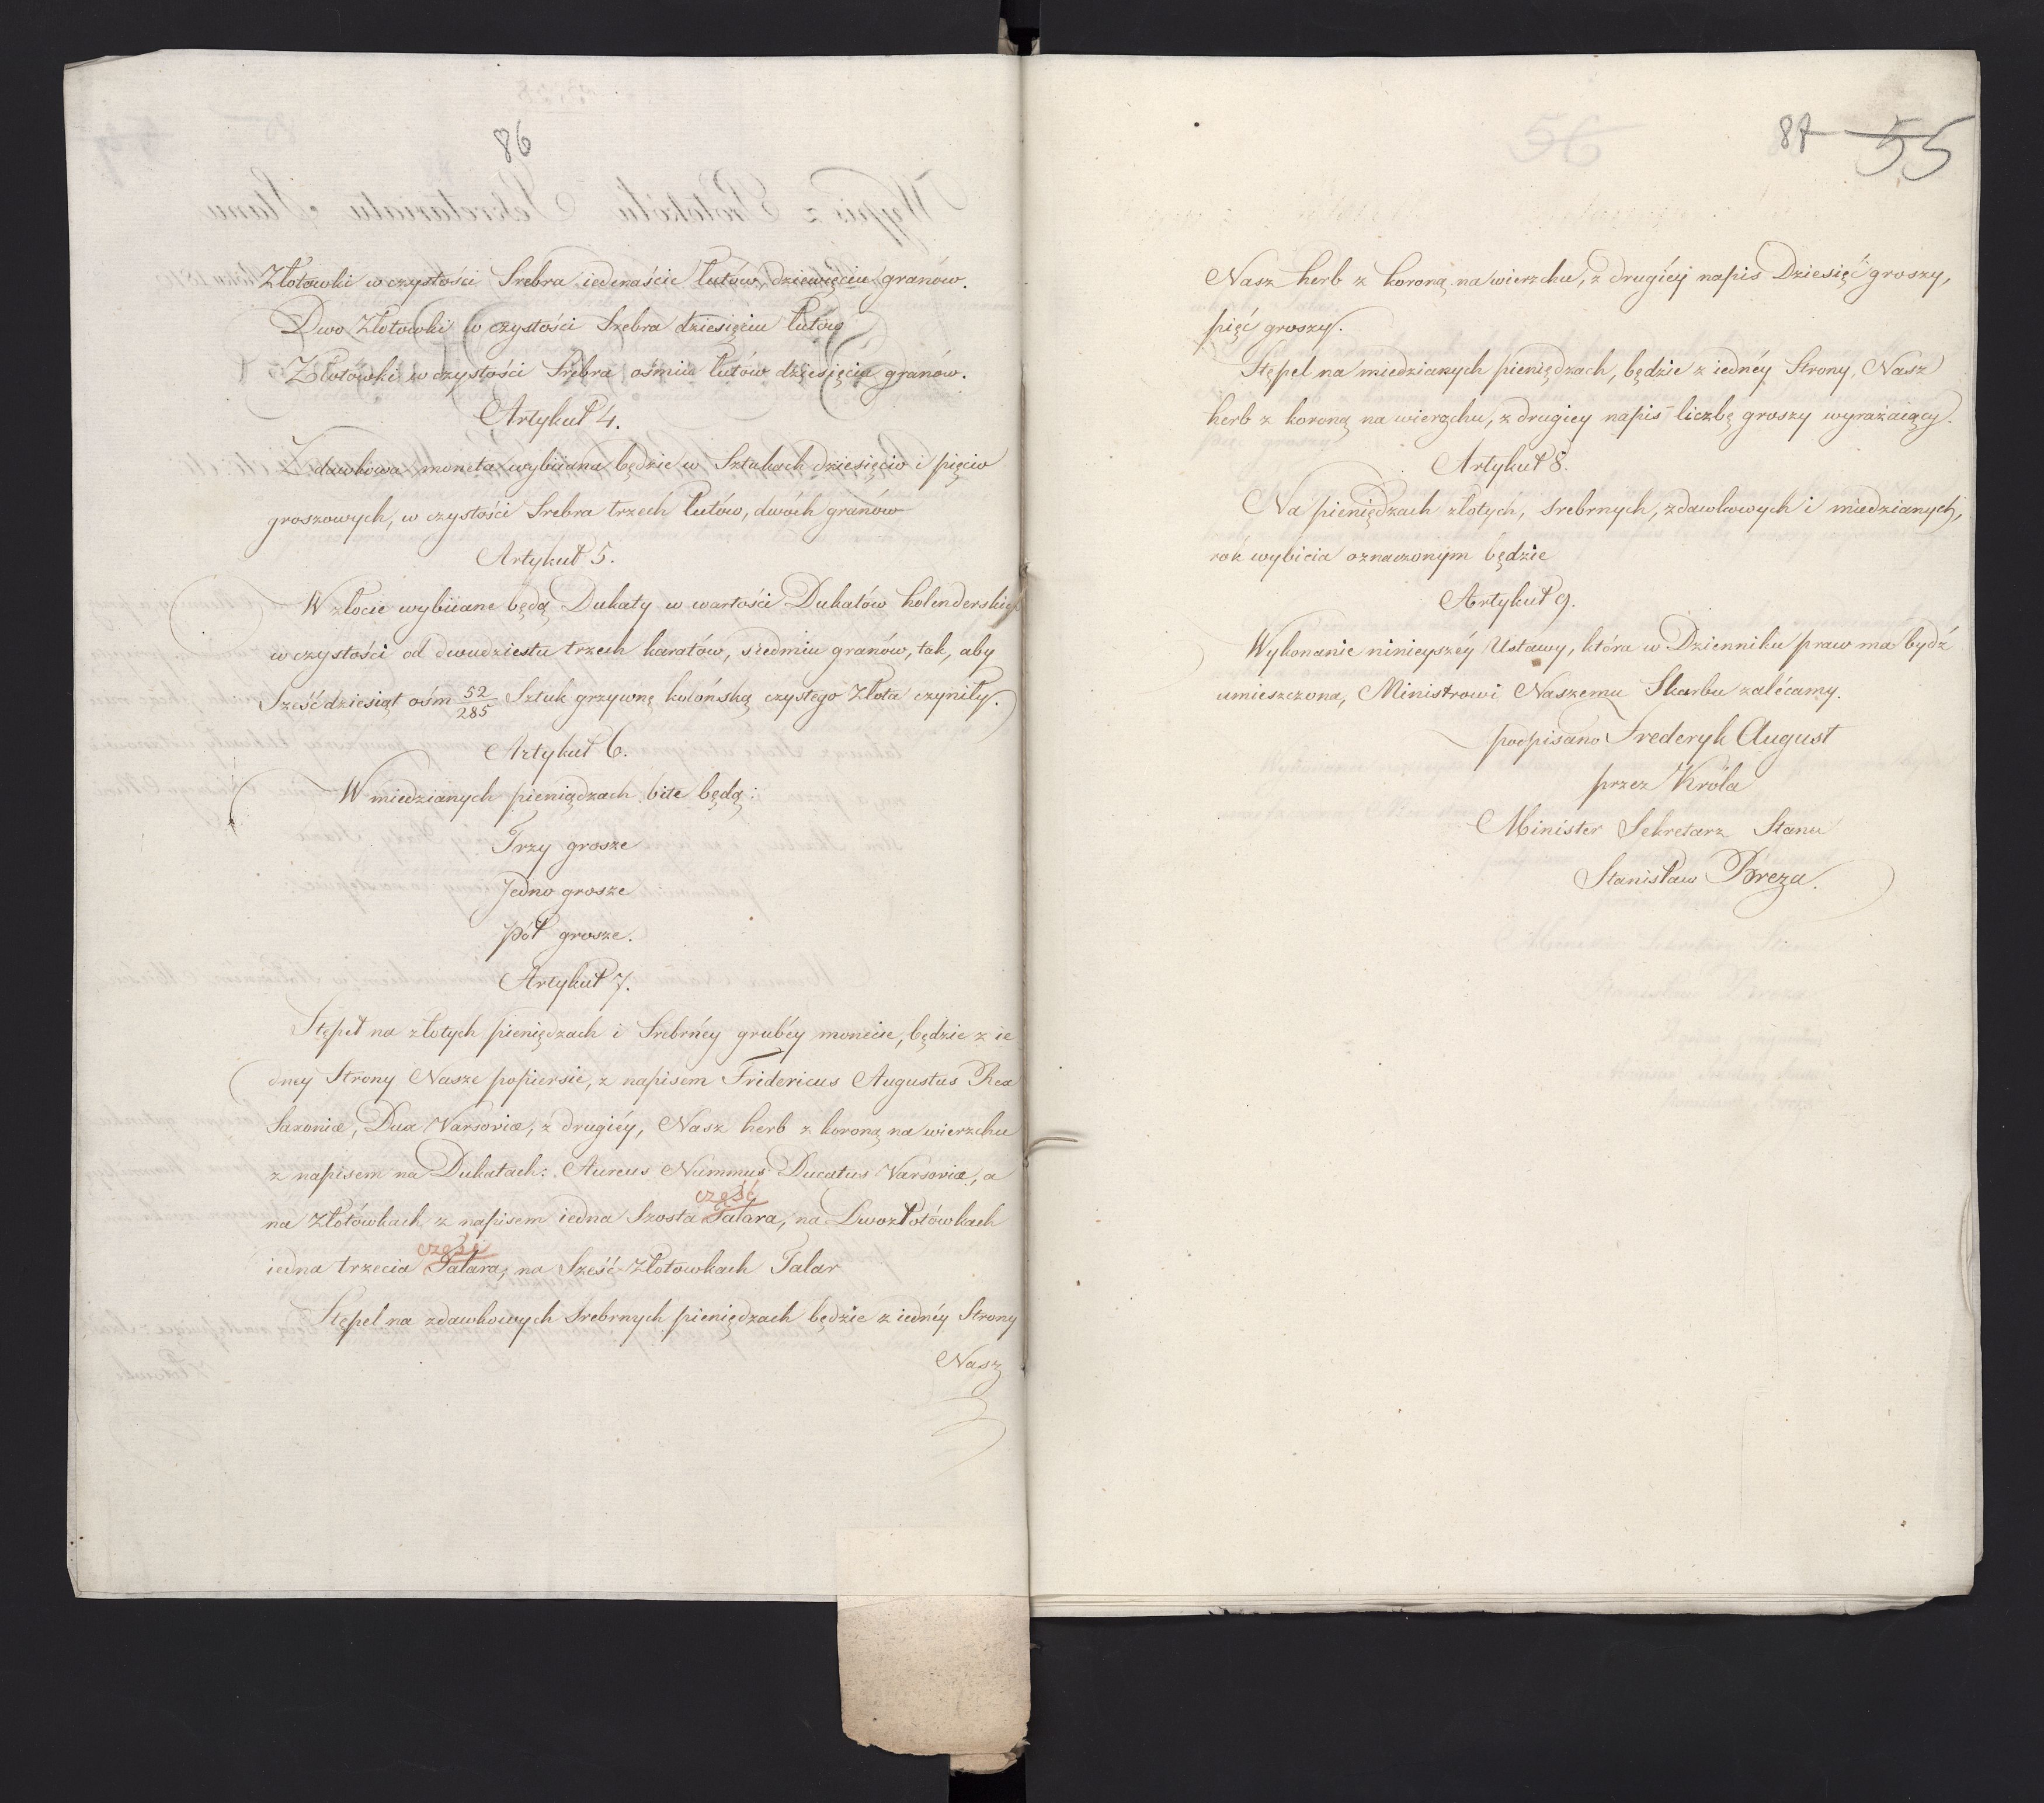 86
Złotowki w czystości Srebra iedenaście łutów, dziewięciu granów.
Dwo Złotowki w czystości Srebra dziesięciu łutów
Złotówki w czystości Srebra ośmiu łutów dziesięciu granów.
Artykuł 4.
Zdawkowa moneta wybiiana będzie w Sztukach dziesięcio i pięcio
groszowych, w czystości Srebra trzech łutów, dwóch granów
Artykuł 5.
W złocie wybiiane będą Dukaty w wartości Dukatów holenderskich
w czystości od dwudziestu trzech karatów, siedmiu granów, tak, aby
Sześćdziesiąt ośm 52/285 Sztuk grzywnę kolońską czystego Złota czyniły.
Artykuł 6.
W miedzianych pieniądzach bite będą:
Trzy grosze
Jedno grosze
Pół grosze.
Artykuł 7.
Stępel na złotych pieniędzach i Srebrnéy grubéy monecie, będzie z ie
dney Strony Nasze popiersie, z napisem Fridericus Augustus Rex
Saxoniæ, Dux Varsoviæ, z drugiéy, Nasz herb z koroną na wierzchu
z napisem na Dukatach: Aureus Nummus Ducatus Varsoviæ, a
część
na Złotówkach z napisem iedna Szosta Talara, na Dwozłotówkach
część
iedna trzecia Talara, na Sześć Złotowkach Talar
Stępel na zdawkowych Srebrnych pieniędzach będzie z iednéy Strony
Nasz
87 55
Nasz herb z koroną na wierzchu, z drugiéy napis Dziesięć groszy,
pięć groszy.
Stępel na miedzianych pieniędzach, będzie z iednéy Strony, Nasz
herb z koroną na wierzchu, z drugiey napis liczbę groszy wyrażaiący.
Artykuł 8.
Na pieniędzach złotych, srebrnych, zdawkowych i miedzianych,
rok wybicia oznaczonym będzie
Artykuł 9.
Wykonanie ninieyszéy Ustawy, która w Dzienniku praw ma bydź
umieszczona, Ministrowi Naszemu Skarbu zalécamy.
podpisano Frederyk August
przez Króla
Minister Sekretarz Stanu
Stanisław Breza.